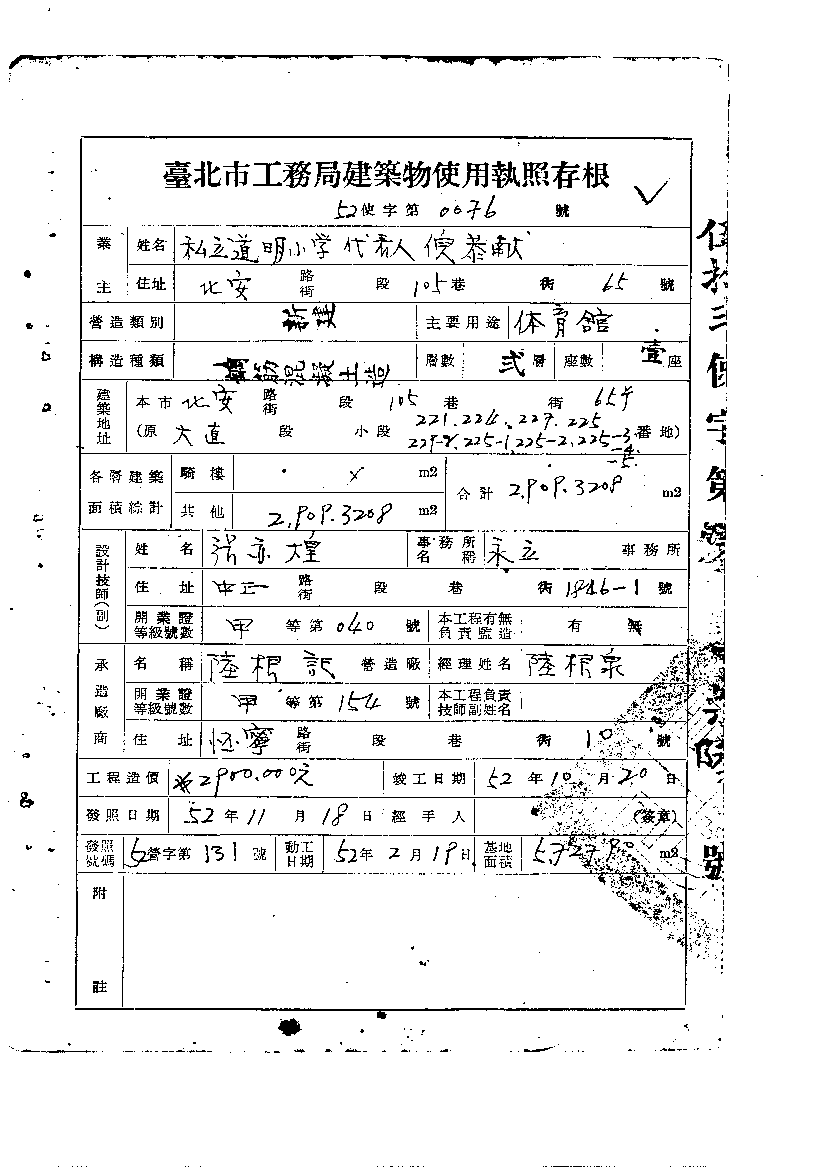 臺北市工務局建築物使用執照存根
52使字第 0076 號
業主 姓名 私立道明小学代表人
住址 北安 路街 段 105巷 街 65 號
營造類別 新建 主要用途 体育館
構造種類 鋼筋混凝土造 層數 弍層 座數 壹座
建築地址 本市 北安 路街 段 105 巷 街 65号
(原 大直 段 小段 221.224.227.225 番地)
225-1,225-2,225-3
各層建築面積綜計 騎樓 × m2 合計 2,909.3208 m2
其他 2,909.3208 m2
設計技師(副) 姓名 張亦煌 事務所名稱 永立 事務所
住址 中正 路街 段 巷 街 1846-1 號
開業證等級號數 甲 等第 040 號 本工程有無負責監造 有 無
承造廠商 名稱 陸根記 營造廠 經理姓名 陸根泉
開業證等級號數 甲 等第 154 號 本工程負責技師副姓名
住址 怀寧 路街 段 巷 街 10 號
工程造價 2900.000元 竣工日期 52年10月20日
發照日期 52年11月18日 經手人 (簽章)
發照號碼 52營字第 131 號 動工日期 52年2月19日 基地面積 m2
附註